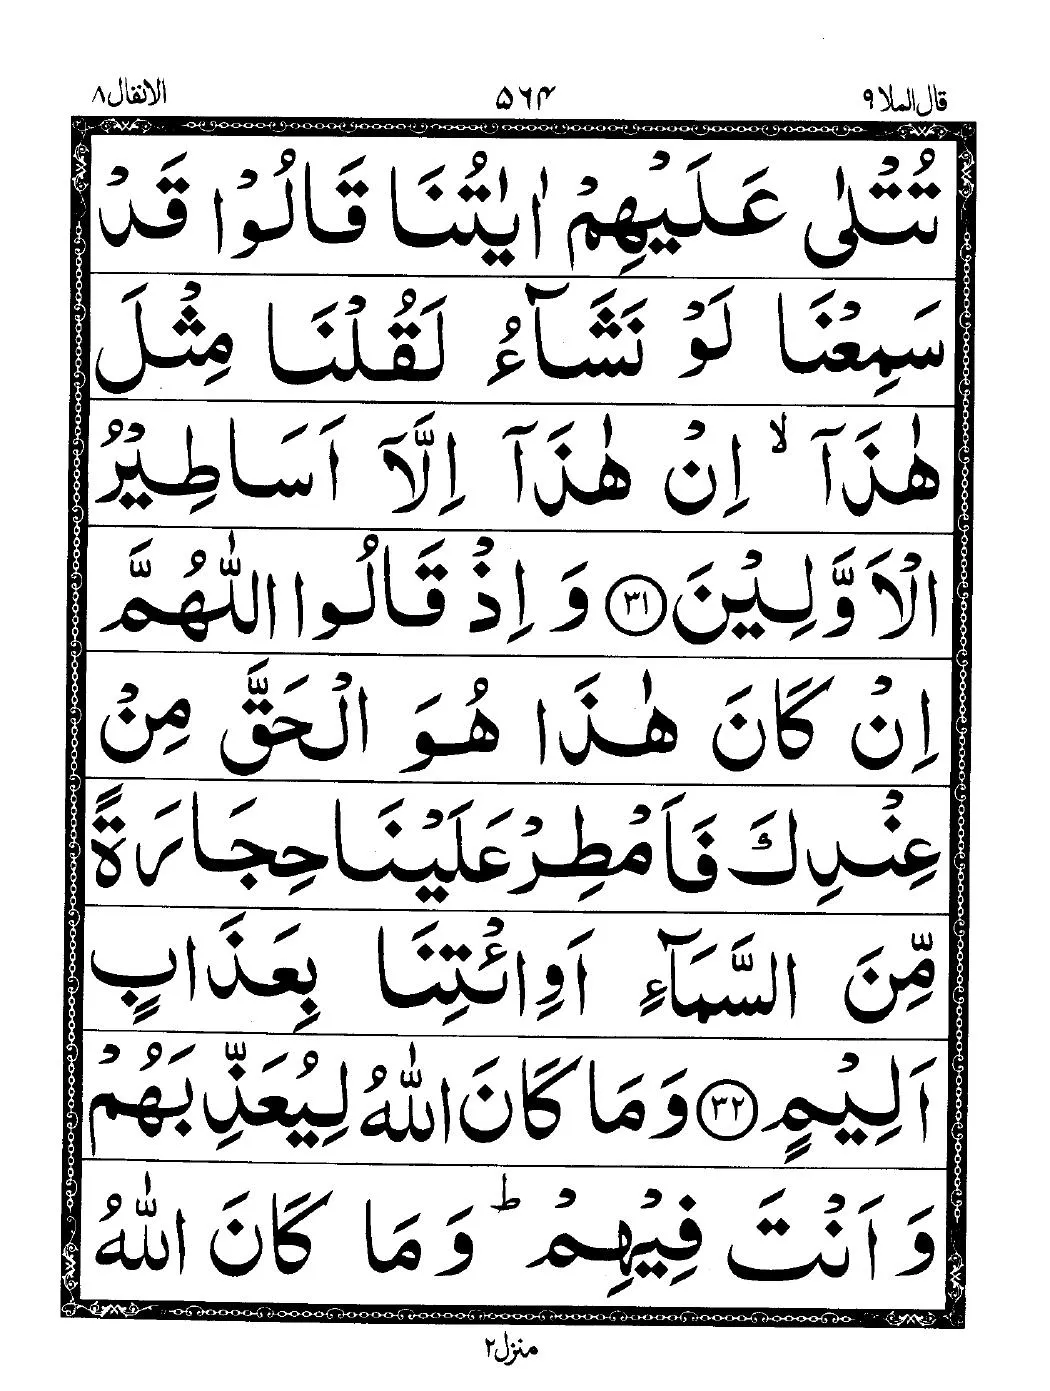 قال الملا ۹ ۵۶۴ الانفال ۸
تُتْلٰى عَلَيْهِمْ اٰيٰتُنَا قَالُوْا قَدْ
سَمِعْنَا لَوْ نَشَآءُ لَقُلْنَا مِثْلَ
هٰذَآ ۙ اِنْ هٰذَآ اِلَّآ اَسَاطِيْرُ
الْاَوَّلِيْنَ ۳۱ وَ اِذْ قَالُوا اللّٰهُمَّ
اِنْ كَانَ هٰذَا هُوَ الْحَقَّ مِنْ
عِنْدِكَ فَاَمْطِرْ عَلَيْنَا حِجَارَةً
مِّنَ السَّمَآءِ اَوِ ائْتِنَا بِعَذَابٍ
اَلِيْمٍ ۳۲ وَ مَا كَانَ اللّٰهُ لِيُعَذِّبَهُمْ
وَ اَنْتَ فِيْهِمْ ؕ وَ مَا كَانَ اللّٰهُ
منزل ۲